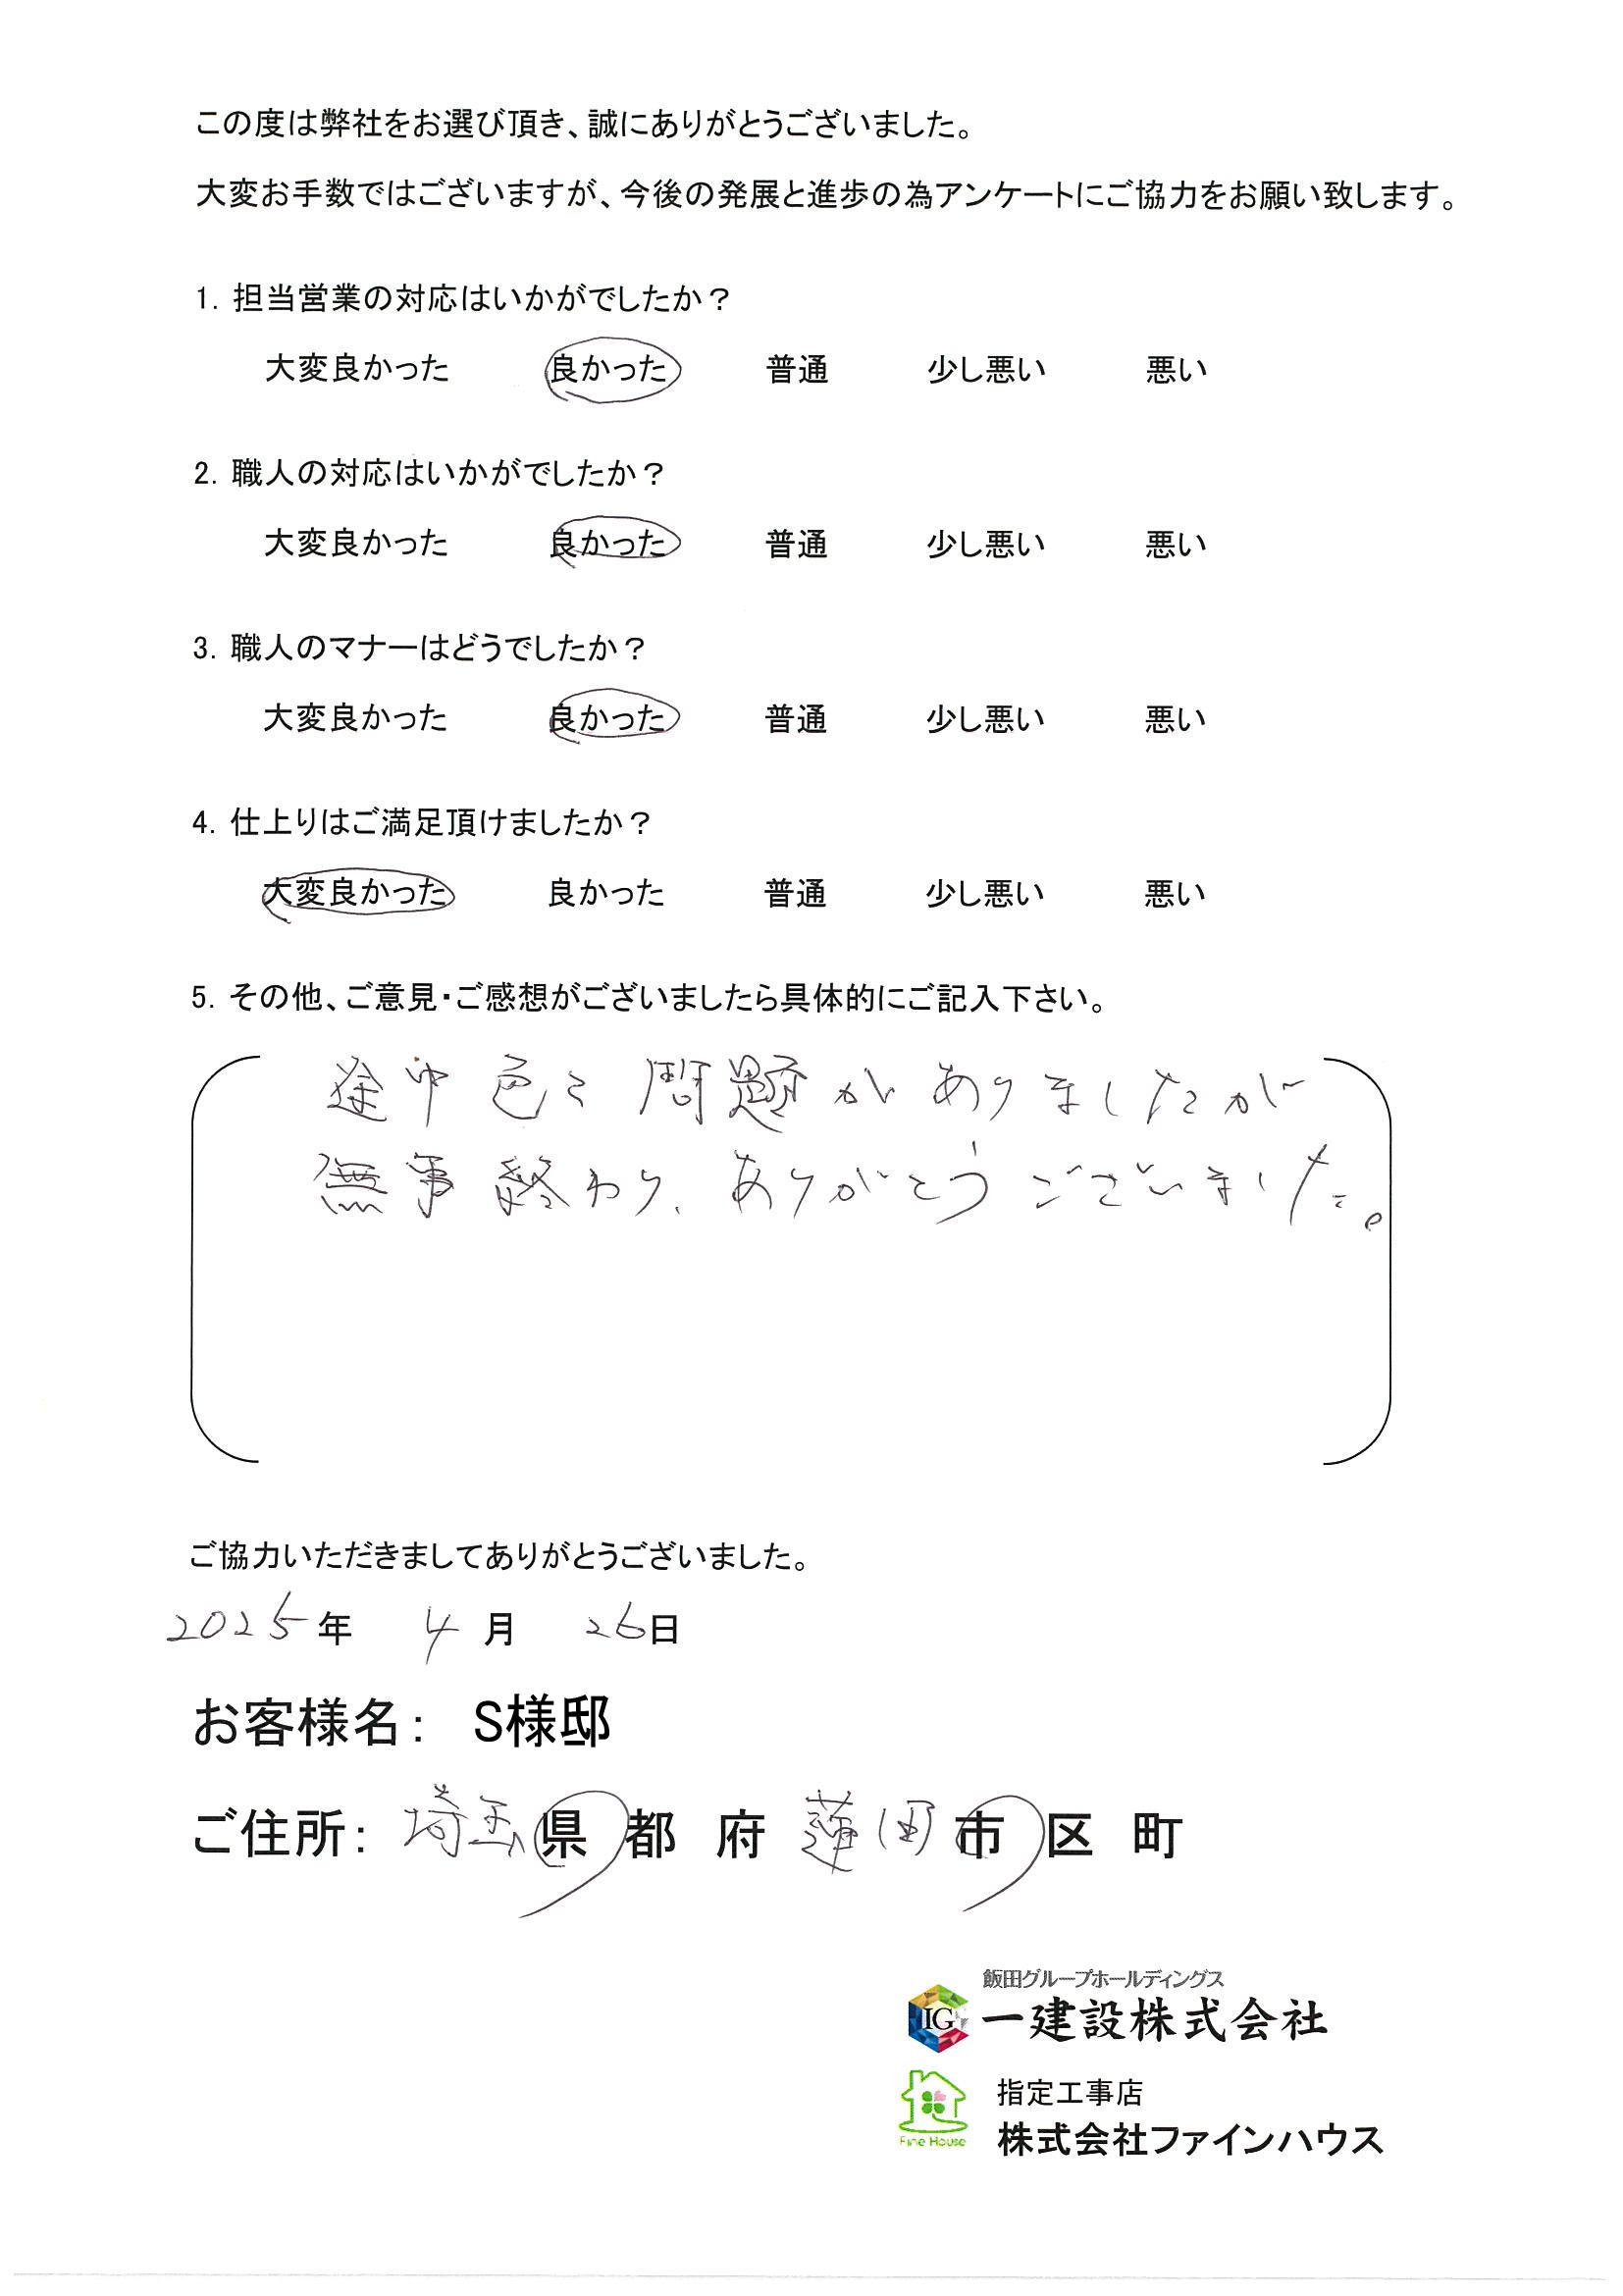 この度は弊社をお選び頂き、誠にありがとうございました。
大変お手数ではございますが、今後の発展と進歩の為アンケートにご協力をお願い致します。
1. 担当営業の対応はいかがでしたか？
大変良かった 良かった 普通 少し悪い 悪い
2. 職人の対応はいかがでしたか？
大変良かった 良かった 普通 少し悪い 悪い
3. 職人のマナーはどうでしたか？
大変良かった 良かった 普通 少し悪い 悪い
4. 仕上りはご満足頂けましたか？
大変良かった 良かった 普通 少し悪い 悪い
5. その他、ご意見・ご感想がございましたら具体的にご記入下さい。
途中色々問題がありましたが
無事終わり、ありがとうございました。
ご協力いただきましてありがとうございました。
2025年 4月 26日
お客様名： S様邸
ご住所： 埼玉県 都 府 蓮田市 区 町
飯田グループホールディングス
IG 一建設株式会社
指定工事店
Fine House 株式会社ファインハウス